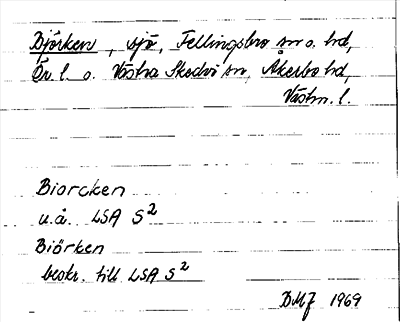 Björken, sjö, Fellingsbro sn o. hd,
Ör. l. o. Västra Skedvi sn, Åkerbo hd,
Västm. l.
Biorcken
u.å. LSA S2
Biörken
beskr. till LSA S2
BMJ 1969